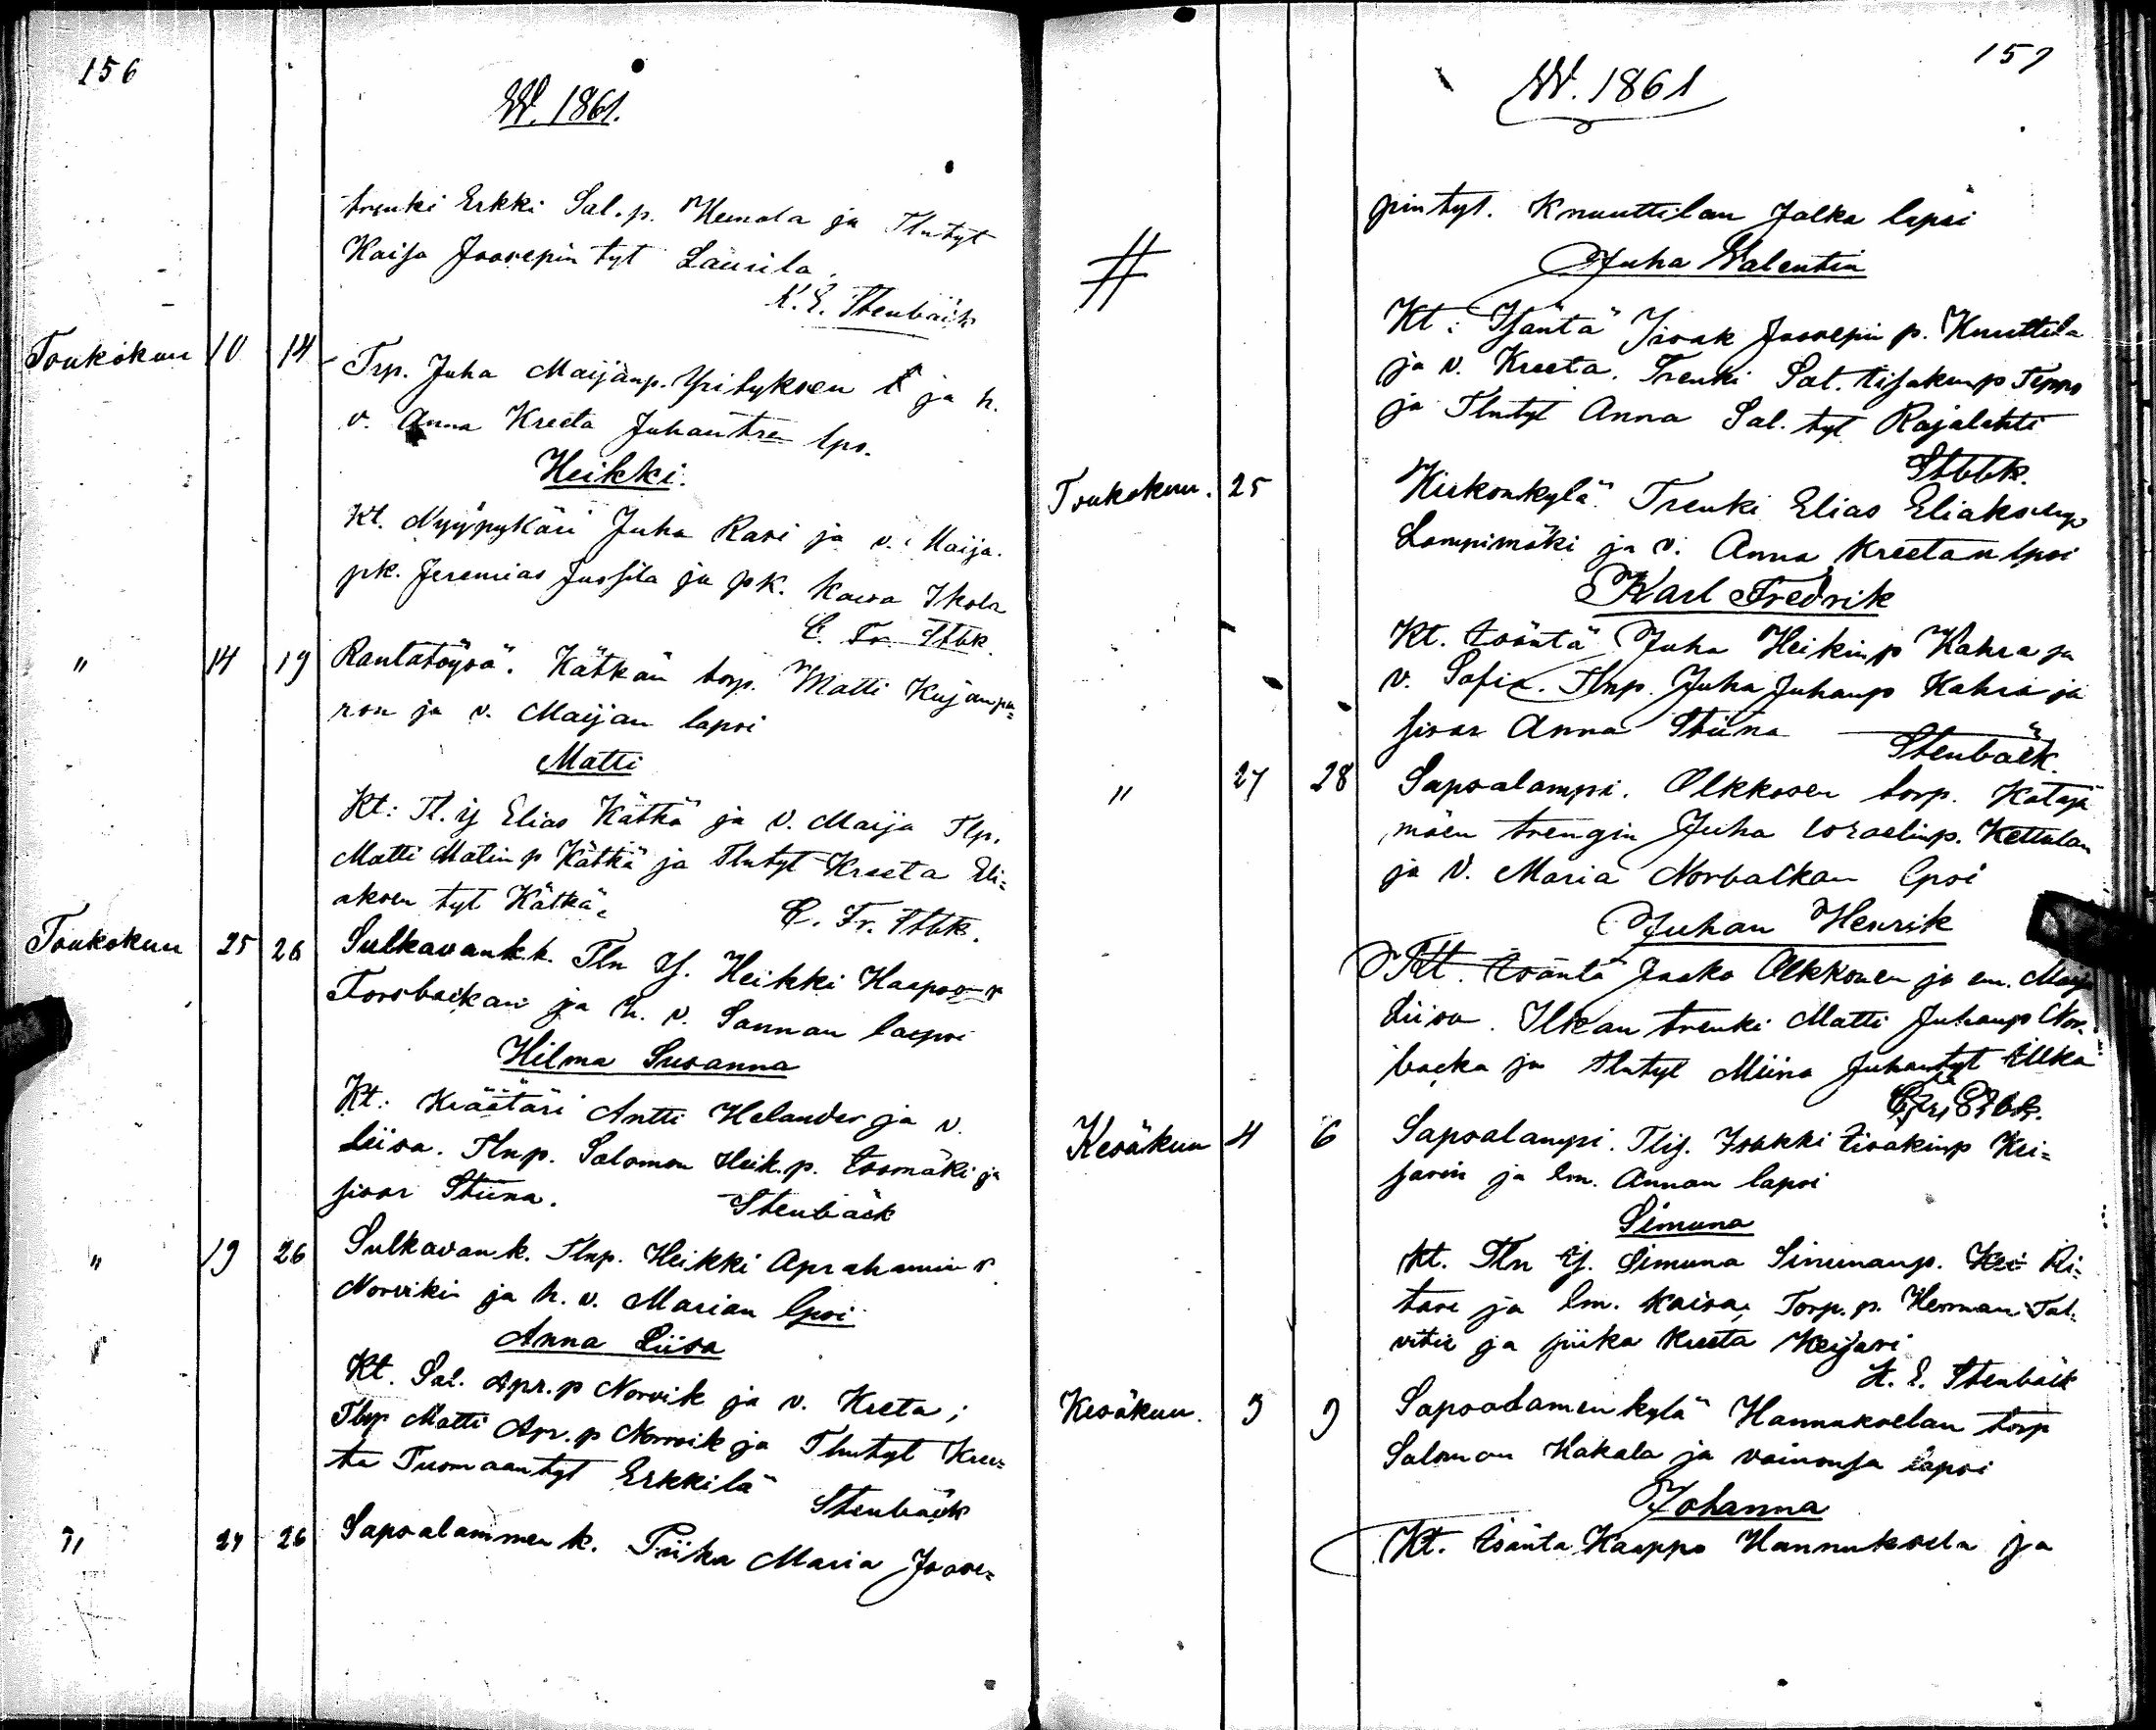 156
W. 1861.
trenki Erkki Sal. p. Kemola ja Tlntyt
Kaisa Joosepin tyt Laurila.
K. E. Stenbäck
Toukokuu 10 14 Trp. Juha Maijanp. Yrityksen ja h.
v. Anna Kreeta Juhantrn lps.
Heikki.
Kt. Nyypykäri Juha Rasi ja v. Maija.
pk. Jeremias Jussila ja pk. Kaisa Ikola
C. Fr. Stbk.
" 14 19 Rantatöysä. Kätkän torp. Matti Kujanpä=
rön ja v. Maijan lapsi
Matti
Kt: Tl. ij Elias Kätkä ja v. Maija Tlp.
Matti Matin p Kätkä ja Tlntyt Kreeta Eli=
aksen tyt Kätkä.
C. Fr. Stbk.
Toukokuu 25 26 Sulkavank.k. Tln Ij. Heikki Haapoo
Forsbackan ja h. v. Sannan laspsi
Hilma Susanna
Kt: Kräätäri Antti Helander ja v.
Liisa. Tlnp. Salomon Heik. p. Isomäki ja
sisar Stiina. Stenbäck
" 19 26 Sulkavan k. Tlnp. Heikki Aprahamin
Norvikin ja h. v. Marian lpsi
Anna Liisa
Kt. Sal. Apr. p Norvik ja v. Kreeta;
Tlnp Matti Apr. p Norvik ja Tlntyt Kree=
ta Tuomaantyt Erkkilä
Stenbäck
" 24 26 Sapsalammen k. Piika Maria Joose=
157
W. 1861
pintyt. Knuuttilan Jalka lapsi
Juha Valentin
# Kt: Isäntä Isaak Joosepin p. Knuttila
ja v. Kreeta. Trenki Sal. Iisakinp Teppo
ja Tlntyt Anna Sal. tyt Rajalahti
Stbbk.
Toukokuu. 25 Kirkonkylä. Trenki Elias Eliaksenp
Lampimäki ja v. Anna Kreetan lpsi
Karl Fredrik
Kt. Isäntä Juha Heikinp Kahra ja
v. Sofia. Tlnp. Juha Juhanp Kahra ja
sisar Anna Stiina
Stenbäck.
" 27 28 Sapsalampi. Olkkosen torp. Kataja
mäen trengin Juha Israelinp. Kettulan
ja v. Maria Norbackan lpsi
Juhan Henrik
Kt. Isäntä Jaako Olkkonen ja em. Maija
Liisa. Ilkan trenki Matti Juhanp Nor=
backa ja tlntyt Miina Juhantyt Ilkka
C. Fr. Stbk.
Kesäkuu 4 6 Sapsalampi. Tlij. Isakki Iisakinp Kei=
sarin ja em. Annan lapsi
Simuna
Kt. Tln Ij. Simuna Simunanp. Ri=
tari ja em. Kaisa, Torp. p. Herman Tal=
vitie ja piika Kreeta Keijsari
K. E. Stenbäck
Kesäkuu. 9 9 Sapsodamen kylä Hannukselan torp
Salomon Hakala ja vaimonsa lapsi
Johanna
Kt. Isäntä Kaappo Hannuksela ja